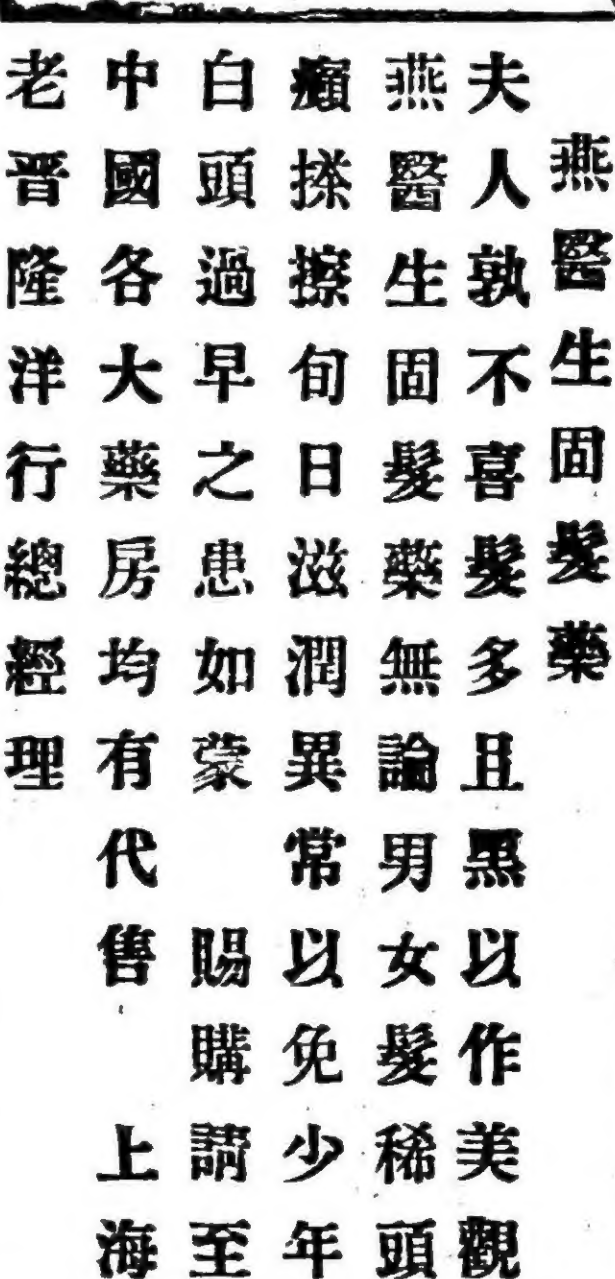 燕醫生固髮藥
夫人孰不喜髮多且黑以作美觀
燕醫生固髮藥無論男女髮稀頭
癩搽擦旬日滋潤異常以免少年
白頭過早之患如蒙 賜購請至
中國各大藥房均有代售 上海
老晋隆洋行總經理